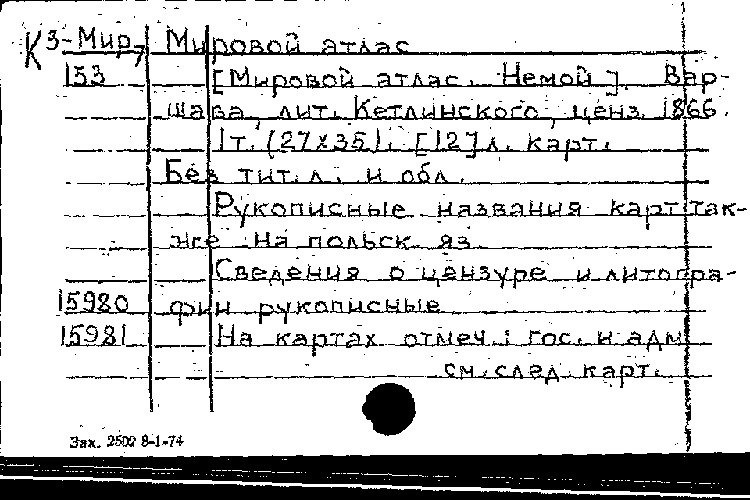 К 3-Мир 7 Мировой атлас
153 [Мировой атлас. Немой]. Вар-
шава, лит. Кетлинского, ценз. 1866.
1т. (27х35). [12] л. карт.
Без тит. л. и обл.
Рукописные названия карт так-
же на польск яз.
Сведения о цензуре и литогра-
15980 фии рукописные
15981 На картах отмеч.: гос. и адм
см. след. карт.
Зак. 2502 8-1-74